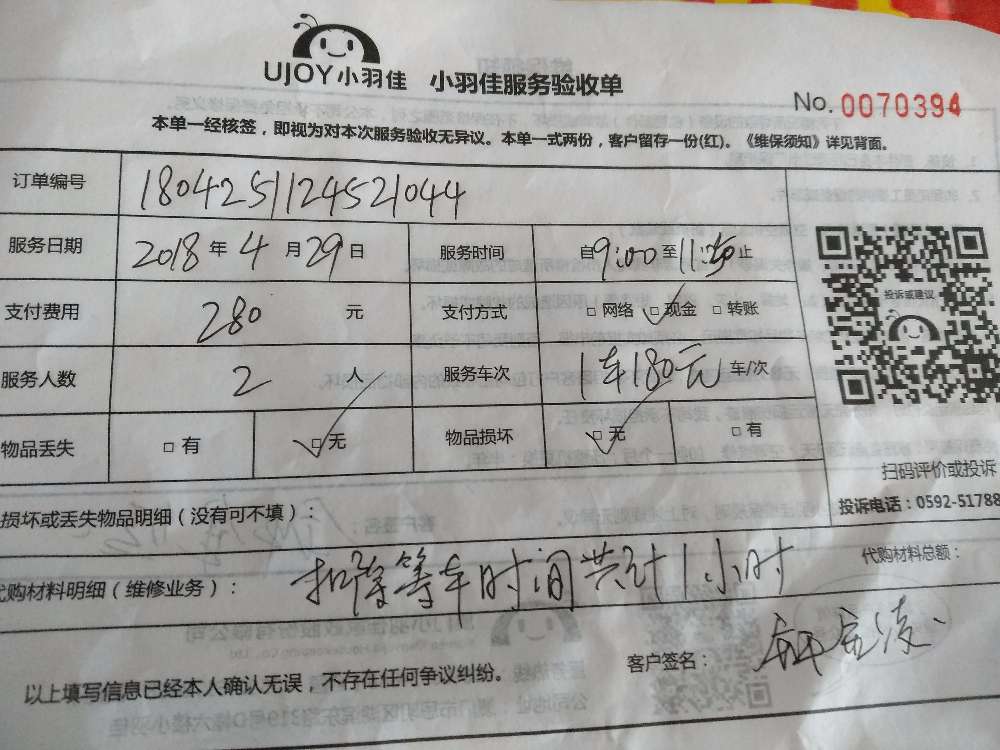 UJOY小羽佳 小羽佳服务验收单
No. 0070394
本单一经核签，即视为对本次服务验收无异议。本单一式两份，客户留存一份(红)。《维保须知》详见背面。
订单编号 1804251124521044
服务日期 2018 年 4 月 29 日 服务时间 自 9:00 至 止
支付费用 280 元 支付方式 □ 网络 □ 现金 □ 转账
服务人数 2 人 服务车次 1车180元 车/次
物品丢失 □ 有 □ 无 物品损坏 □ 无 □ 有
投诉或建议
扫码评价或投诉
投诉电话：0592-51788
损坏或丢失物品明细（没有可不填）：
代购材料明细（维修业务）： 扣除等车时间共计1小时 代购材料总额：
客户签名：
以上填写信息已经本人确认无误，不存在任何争议纠纷。